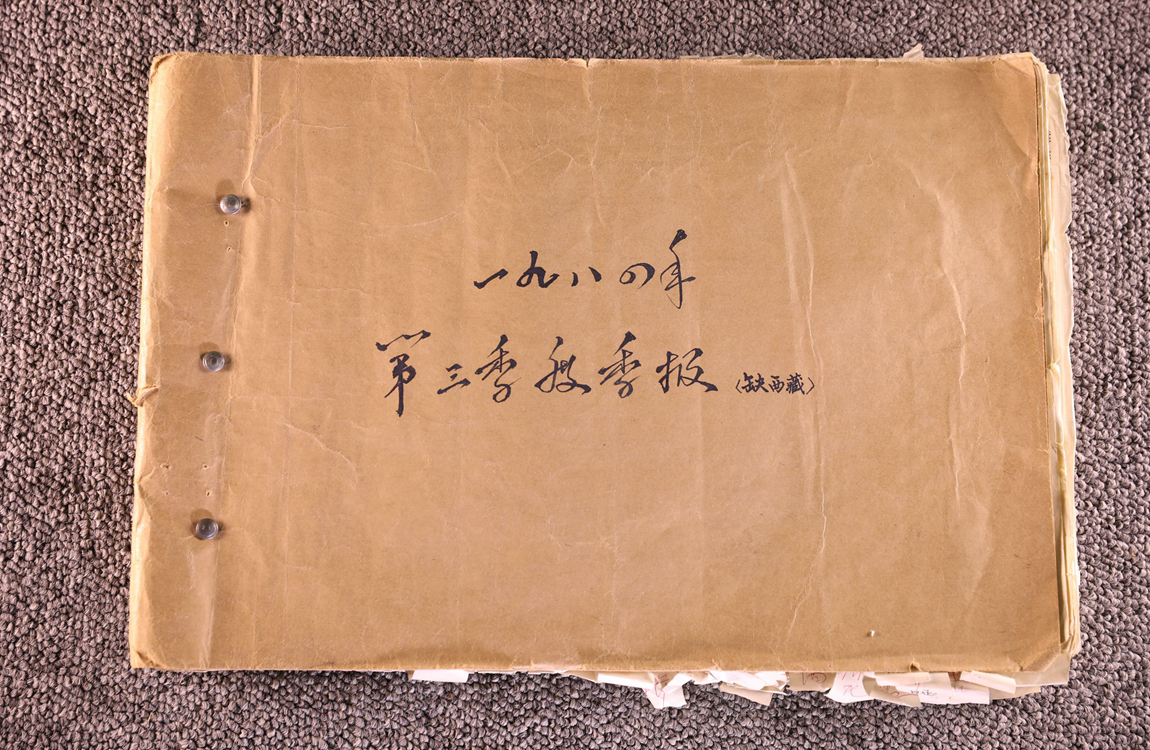 一九八四年
第三季段季报〈缺西藏〉